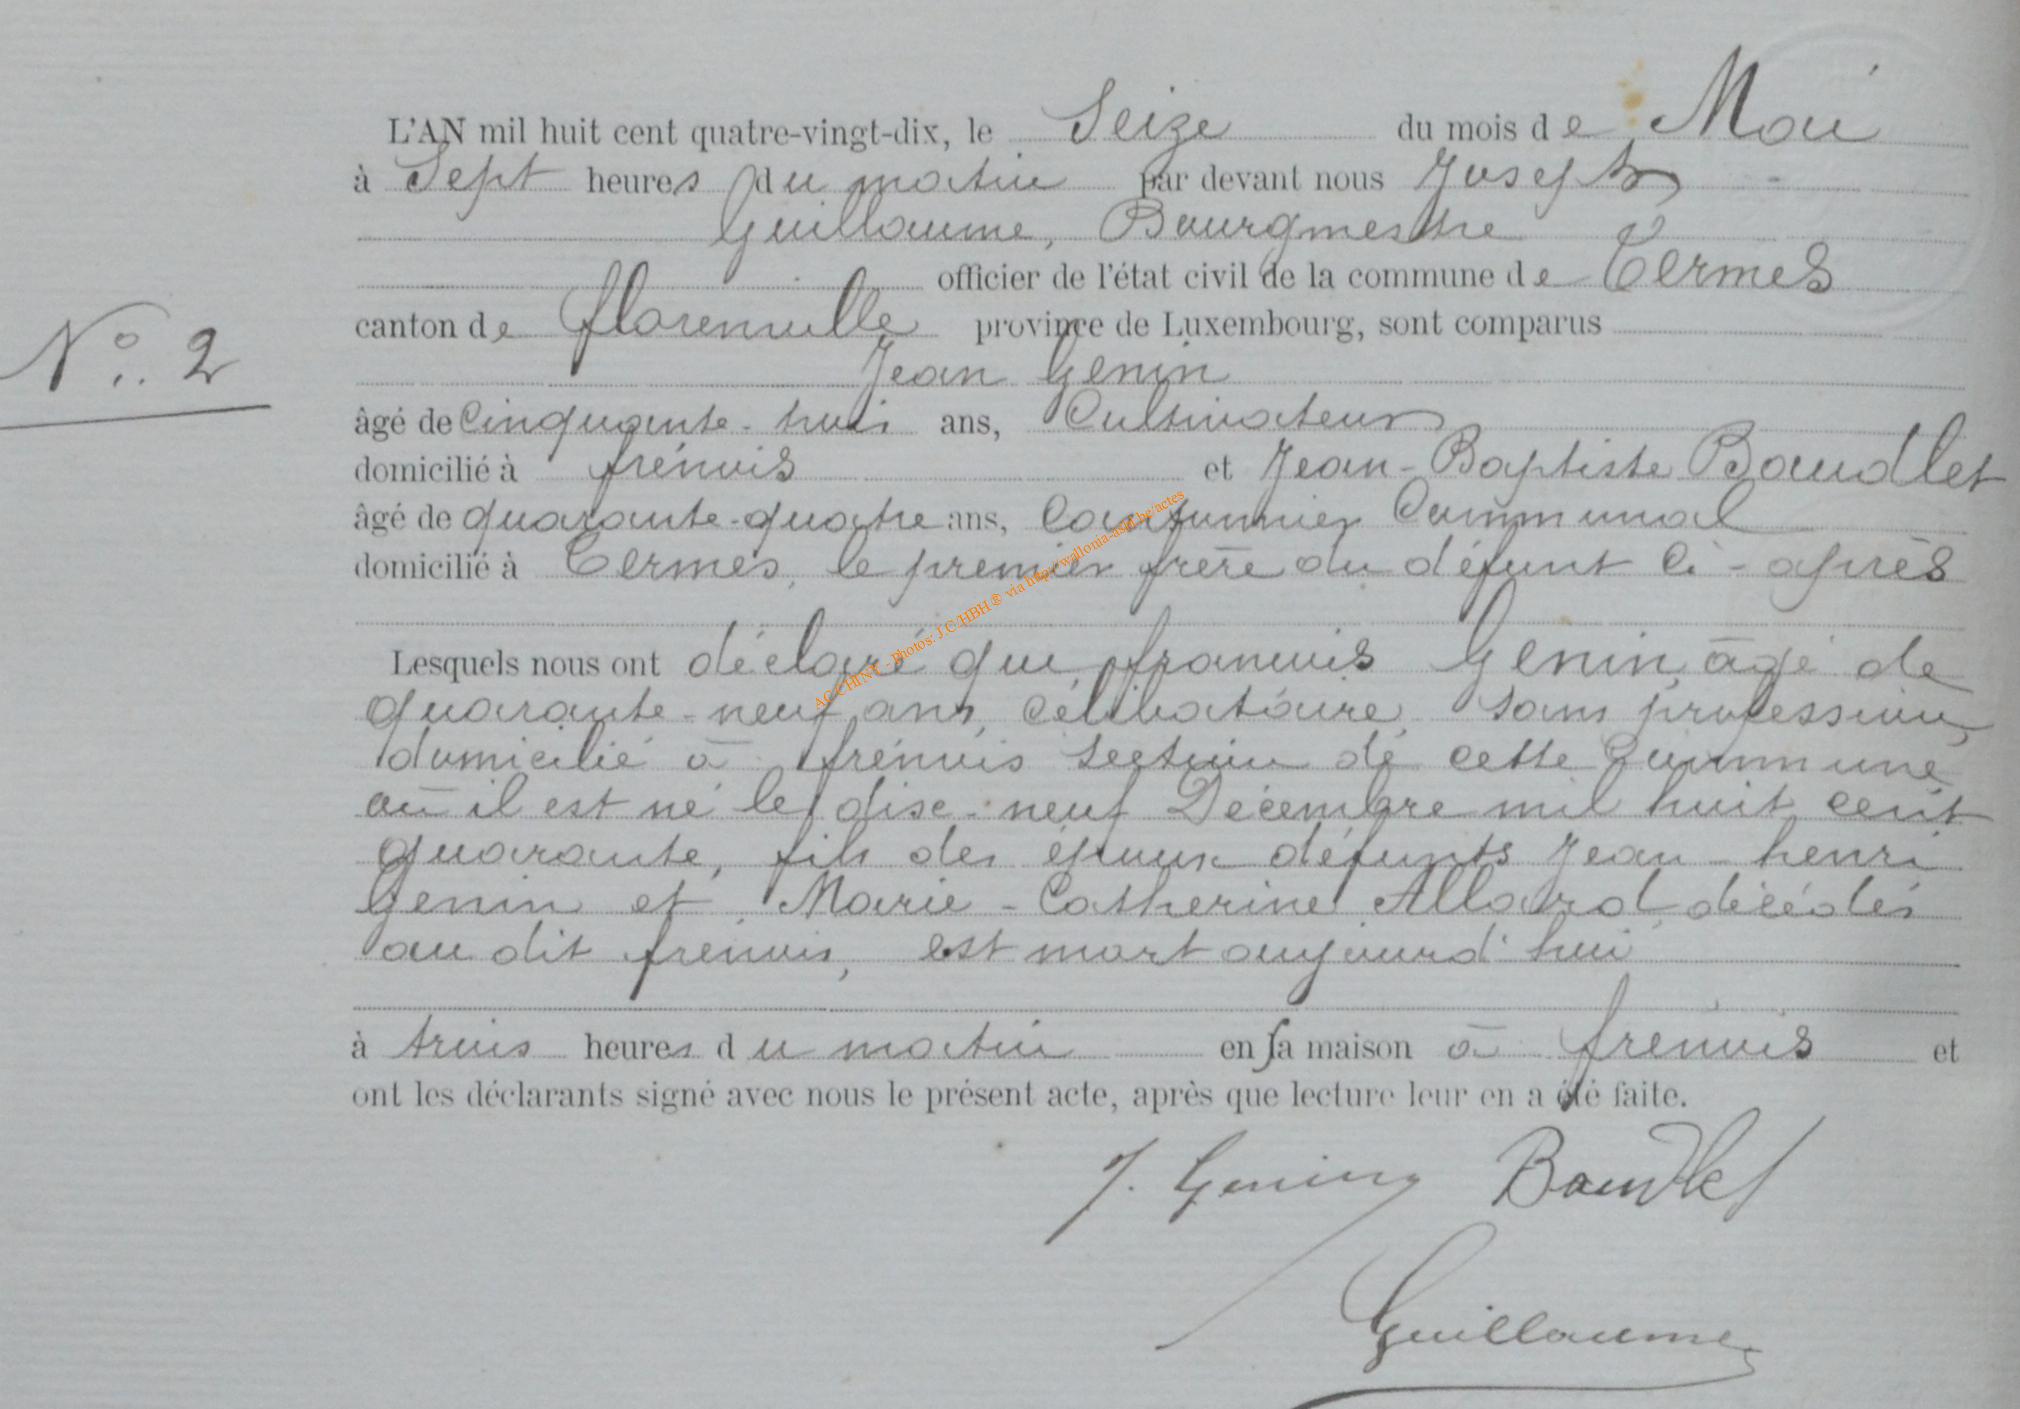 L'AN mil huit cent quatre-vingt-dix, le Seize du mois de Mai
à Sept heures du matin par devant nous Joseph
Guillaume, Bourgmestre
officier de l'état civil de la commune de Termes
canton de florenville province de Luxembourg, sont comparus
N° 2
Jean Genin
âgé de Cinquante-huit ans, Cultivateur
domicilié à frénois et Jean-Baptiste Baudlet
âgé de quarante-quatre ans, Cantonnier Communal
domicilié à Termes, le premier frère du défunt Ci-après
AC CHINY - Photos: J.C/HBH® via http://wallonia-asbl.be/actes
Lesquels nous ont déclaré que francois Genin, âgé de
quarante-neuf ans, célibataire, sans profession,
domicilié à frénois section de cette Commune
où il est né le dix-neuf Décembre mil huit cent
quarante, fils des époux défunts Jean-henri
Genin et Marie-Catherine Allard, décédés
au dit frénois, est mort aujourd'hui
à trois heures du matin en sa maison à frénois et
ont les déclarants signé avec nous le présent acte, après que lecture leur en a été faite.
J. Genin Baudlet
Guillaume